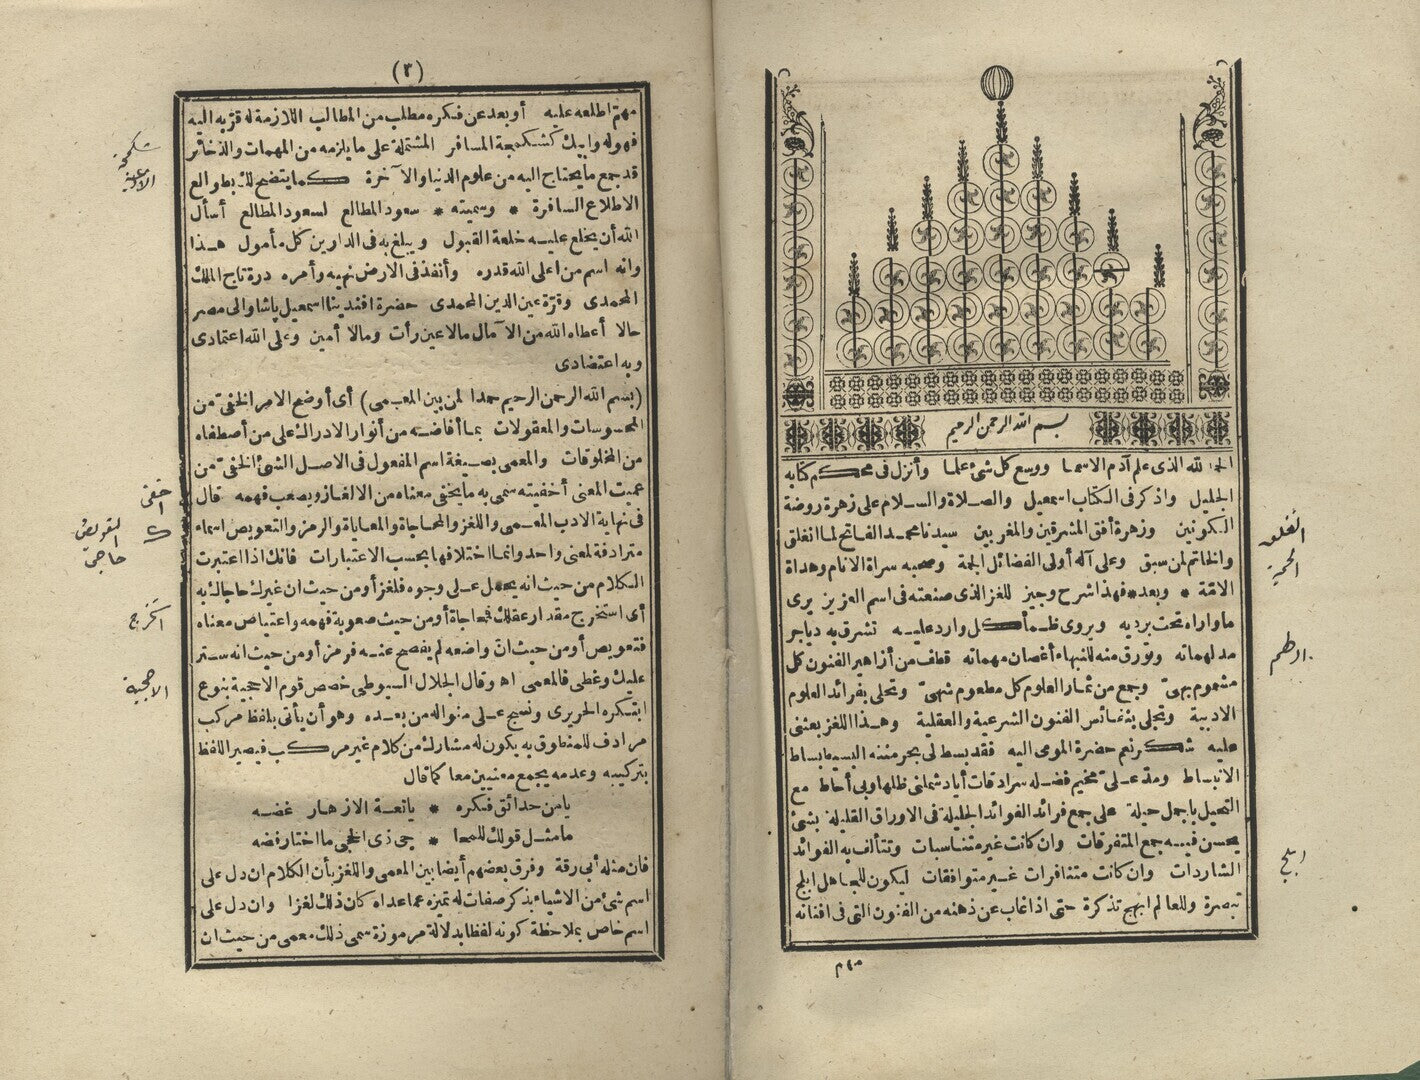 بسم الله الرحمن الرحيم
الحمد لله الذى علم آدم الاسما ووسع كل شئ علما وأنزل فى محكم كتابه
الجليل واذكر فى الكتاب اسمعيل والصلاة والسلام على زهرة روضة
الكونين وزهرة أفق المشرقين والمغربين سيدنا محمد الفاتح لما انغلق
والخاتم لمن سبق وعلى آله أولى الفضائل الجمة وصحبه سراة الانام وهداة
الامّة * وبعد * فهذا شرح وجيز للغز الذى صنعته فى اسم العزيز يرى
ماواراه تحت برديه ويروى ظمأ كل وارد عليه تشرق به دياجر
مدلهماته وتورق منه للنبهاء أغصان مهماته قطف من أزاهير الفنون كل
مشموم بهىّ وجمع من ثمار العلوم كل مطعوم شهىّ وتحلى بفرائد العلوم
الادبية وتجلى بنفائس الفنون الشرعية والعقلية وهذا اللغز بعثنى
عليه شكر نعم حضرة المومى اليه فقد بسط لى بحر مننه البسيط بساط
الانبساط ومدّ علىّ مخيم فضله سرادقات أياد شملنى ظلها وبى أحاط مع
التحيل باجمل حيلة على جمع فرائد الفوائد الجليلة فى الاوراق القليلة بشئ
يحسن فيه جمع المتفرقات وان كانت غير متناسبات وتتألف به الفوائد
الشاردات وان كانت متنافرات غير متوافقات ليكون للجاهل ابلج
تبصرة وللعالم ابهج تذكرة حتى اذا غاب عن ذهنه من الفنون التى فى افنانه
انغلق
الجمة
ادلهم
ابلج
(٣)
مهمّ اطلعه عليه أو بعد عن فكره مطلب من المطالب اللازمة له قرّبه اليه
فهو له وابيك كشكمجة المسافر المشتملة على ما يلزمه من المهمات والذخائر
قد جمع ما يحتاج اليه من علوم الدنيا والآخرة كما يتضح لك بطوالع
الاطلاع السافرة * وسميته * سعود المطالع لسعود المطالع أسأل
الله أن يخلع عليه خلعة القبول ويبلغ به فى الدارين كل مأمول هذا
وانه اسم من اعلى الله قدره وأنفذ فى الارض نهيه وأمره درة تاج الملك
المحمدى وقرّة عين الدين المحمدى حضرة افندينا اسمعيل پاشا والى مصر
حالا أعطاه الله من الآمال مالا عين رأت ومالا أمين وعلى الله اعتمادى
وبه اعتضادى
(بسم الله الرحمن الرحيم حمدا لمن بين المعمى) أى أوضح الامر الخفىّ من
المحسوسات والمعقولات بما أفاضه من أنوار الادراك على من أصطفاه
من المخلوقات والمعمى بصيغة اسم المفعول فى الاصل الشئ الخفىّ من
عميت المعنى أخفيته سمى به ما يخفى معناه من الالغاز ويصعب فهمه قال
فى نهاية الادب المعمى واللغز والمحاجاة والمعاياة والرمز والتعويص اسماء
مترادفة لمعنى واحد وانما اختلافها بحسب الاعتبارات فانك اذا اعتبرت
الكلام من حيث انه يحمل على وجوه فلغز أو من حيث ان غيرك حاجاك به
أى استخرج مقدار عقلك فمحاجاة أو من حيث صعوبة فهمه واعتياص معناه
فتعويص أو من حيث انّ واضعه لم يفصح عنه فرمز أو من حيث انه ستر
عليك وغطى فالمعمى اه وقال الجلال السيوطى خصص قوم الاحجية بنوع
ابتكره الحريرى ونسج على منواله من بعده وهو أن يأتى بلفظ مركب
مرادف للمنطوق به يكون له مشارك من كلام غير مركب فيصير اللفظ
بتركيبه وعدمه يجمع معنيين معا كما قال
يامن حدائق فكره * يانعة الازهار غضه
ما مثل قولك للمحا * جى ذى الحجى ما اختار فضه
فان مثله أبى رقة وفرق بعضهم أيضا بين المعمى واللغز بأن الكلام ان دل على
اسم شئ من الاشياء بذكر صفات له تميزه عما عداه كان ذلك لغزا وان دل على
اسم خاص بملاحظة كونه لفظا بدلالة مرموزة سمى ذلك معمى من حيث ان
اخفى
التعويص
حاجى
الاحجية